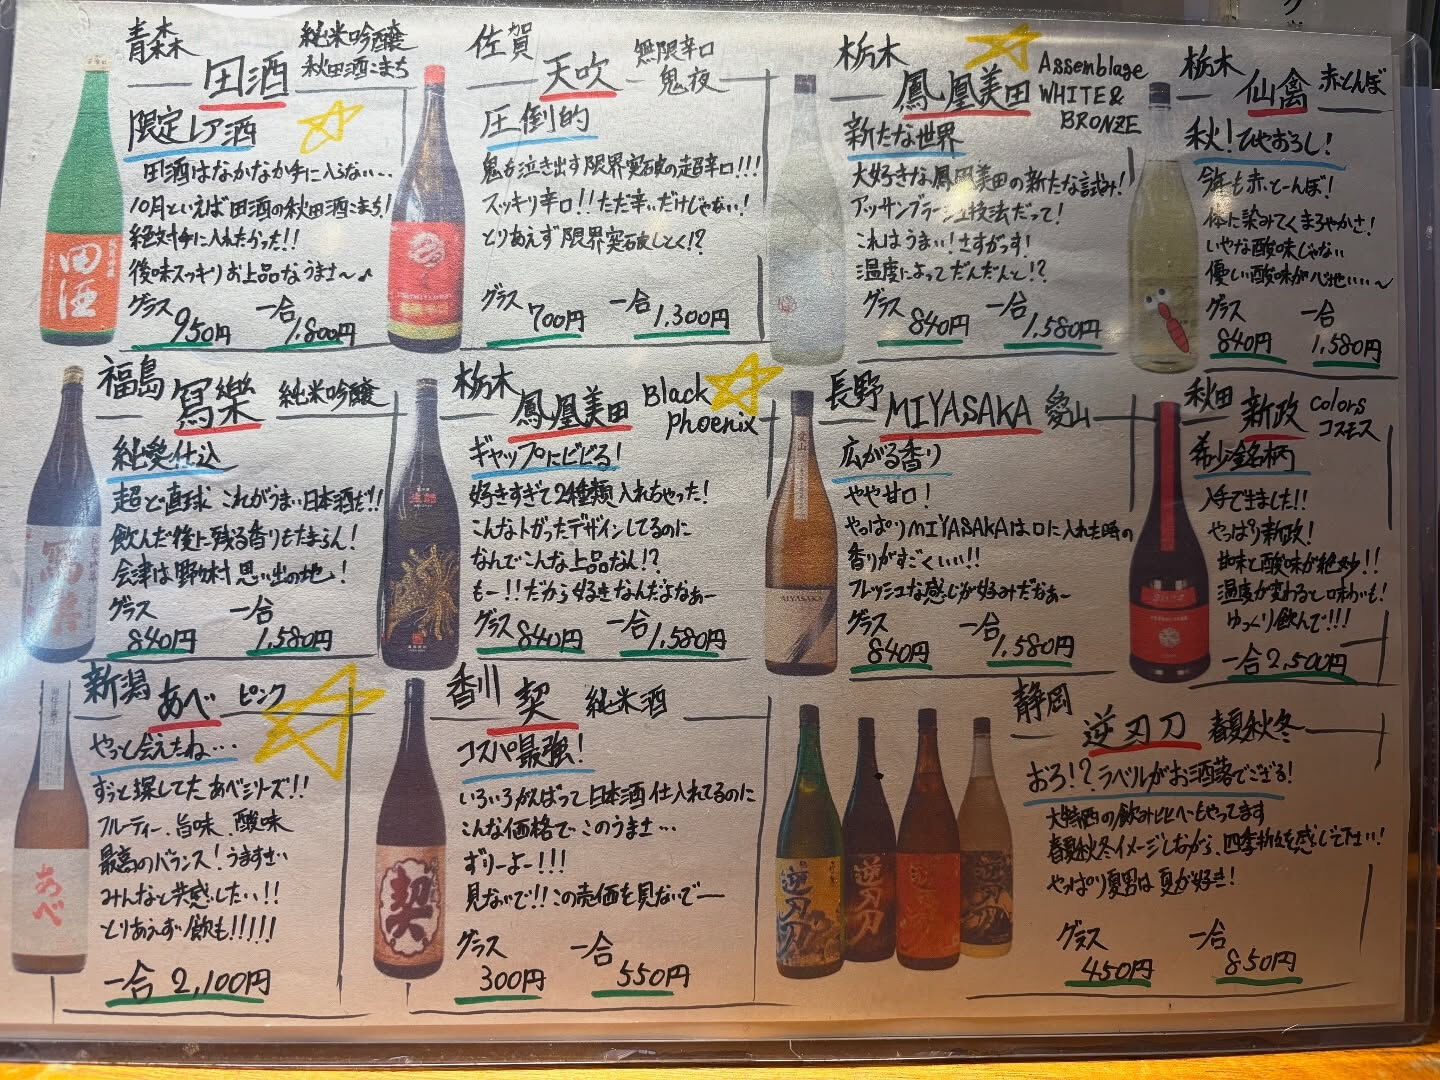 青森
田酒
純米吟醸
秋田酒こまち
限定レア酒
田酒はなかなか手に入らない…
10月といえば田酒の秋田酒こまち!
絶対手に入れたかった!!
後味スッキリお上品なうまさ〜♪
グラス 950円
一合 1,800円
佐賀
天吹
無限辛口
鬼夜
圧倒的
鬼も泣き出す限界突破の超辛口!!!
スッキリ辛口!!ただ辛いだけじゃない!
とりあえず限界突破しとく!?
グラス 700円
一合 1,300円
栃木
鳳凰美田
Assemblage
WHITE&
BRONZE
新たな世界
大好きな鳳凰美田の新たな試み!
アッサンブラージュ技法だって!
これはうまい!さすがっす!
温度によってだんだんと!?
グラス 840円
一合 1,580円
栃木
仙禽
赤とんぼ
秋!ひやおろし!
今年も赤とーんぼ!
体に染みてくまろやかさ!
いやな酸味じゃない
優しい酸味が心地いい〜
グラス 840円
一合 1,580円
福島
冩樂
純米吟醸
純愛仕込
超ど直球 これがうまい日本酒だ!!
飲んだ後に残る香りもたまらん!
会津は野村 思い出の地!
グラス 840円
一合 1,580円
栃木
鳳凰美田
Black
Phoenix
ギャップにビビる!
好きすぎて2種類入れちゃった!
こんなトガったデザインしてるのに
なんでこんな上品なん!?
もー!!だから好きなんだよなぁー
グラス 840円
一合 1,580円
長野
MIYASAKA
愛山
広がる香り
やや甘口!
やっぱりMIYASAKAは口に入れた時の
香りがすごくいい!!
フレッシュな感じが好みだなぁ〜
グラス 840円
一合 1,580円
秋田
新政
Colors
コスモス
希少金銘柄
入手できました!!
やっぱり新政!
甘味と酸味が絶妙!!
温度が変わると味わいも!
ゆっくり飲んで!!!
一合 2,500円
新潟
あべ
ピンク
やっと会えたね…
ずっと探してたあべシリーズ!!
フルーティー、旨味、酸味
最高のバランス!うますぎ
みんなと共感したい!!
とりあえず飲も!!!!!
一合 2,100円
香川
契
純米酒
コスパ最強!
いろいろがんばって日本酒仕入れてるのに
こんな価格でこのうまさ…
ずりーよー!!!
見ないで!!この売価を見ないでー
グラス 300円
一合 550円
静岡
逆刃刀
春夏秋冬
おろ!?ラベルがお洒落でござる!
春夏秋冬イメージしながら、四季折々を感じて下さい!
やっぱり夏男は夏が好き!
グラス 450円
一合 850円
田酒
MIYASAKA
あべ
契
逆刃刀
逆刃刀
逆刃刀
逆刃刀